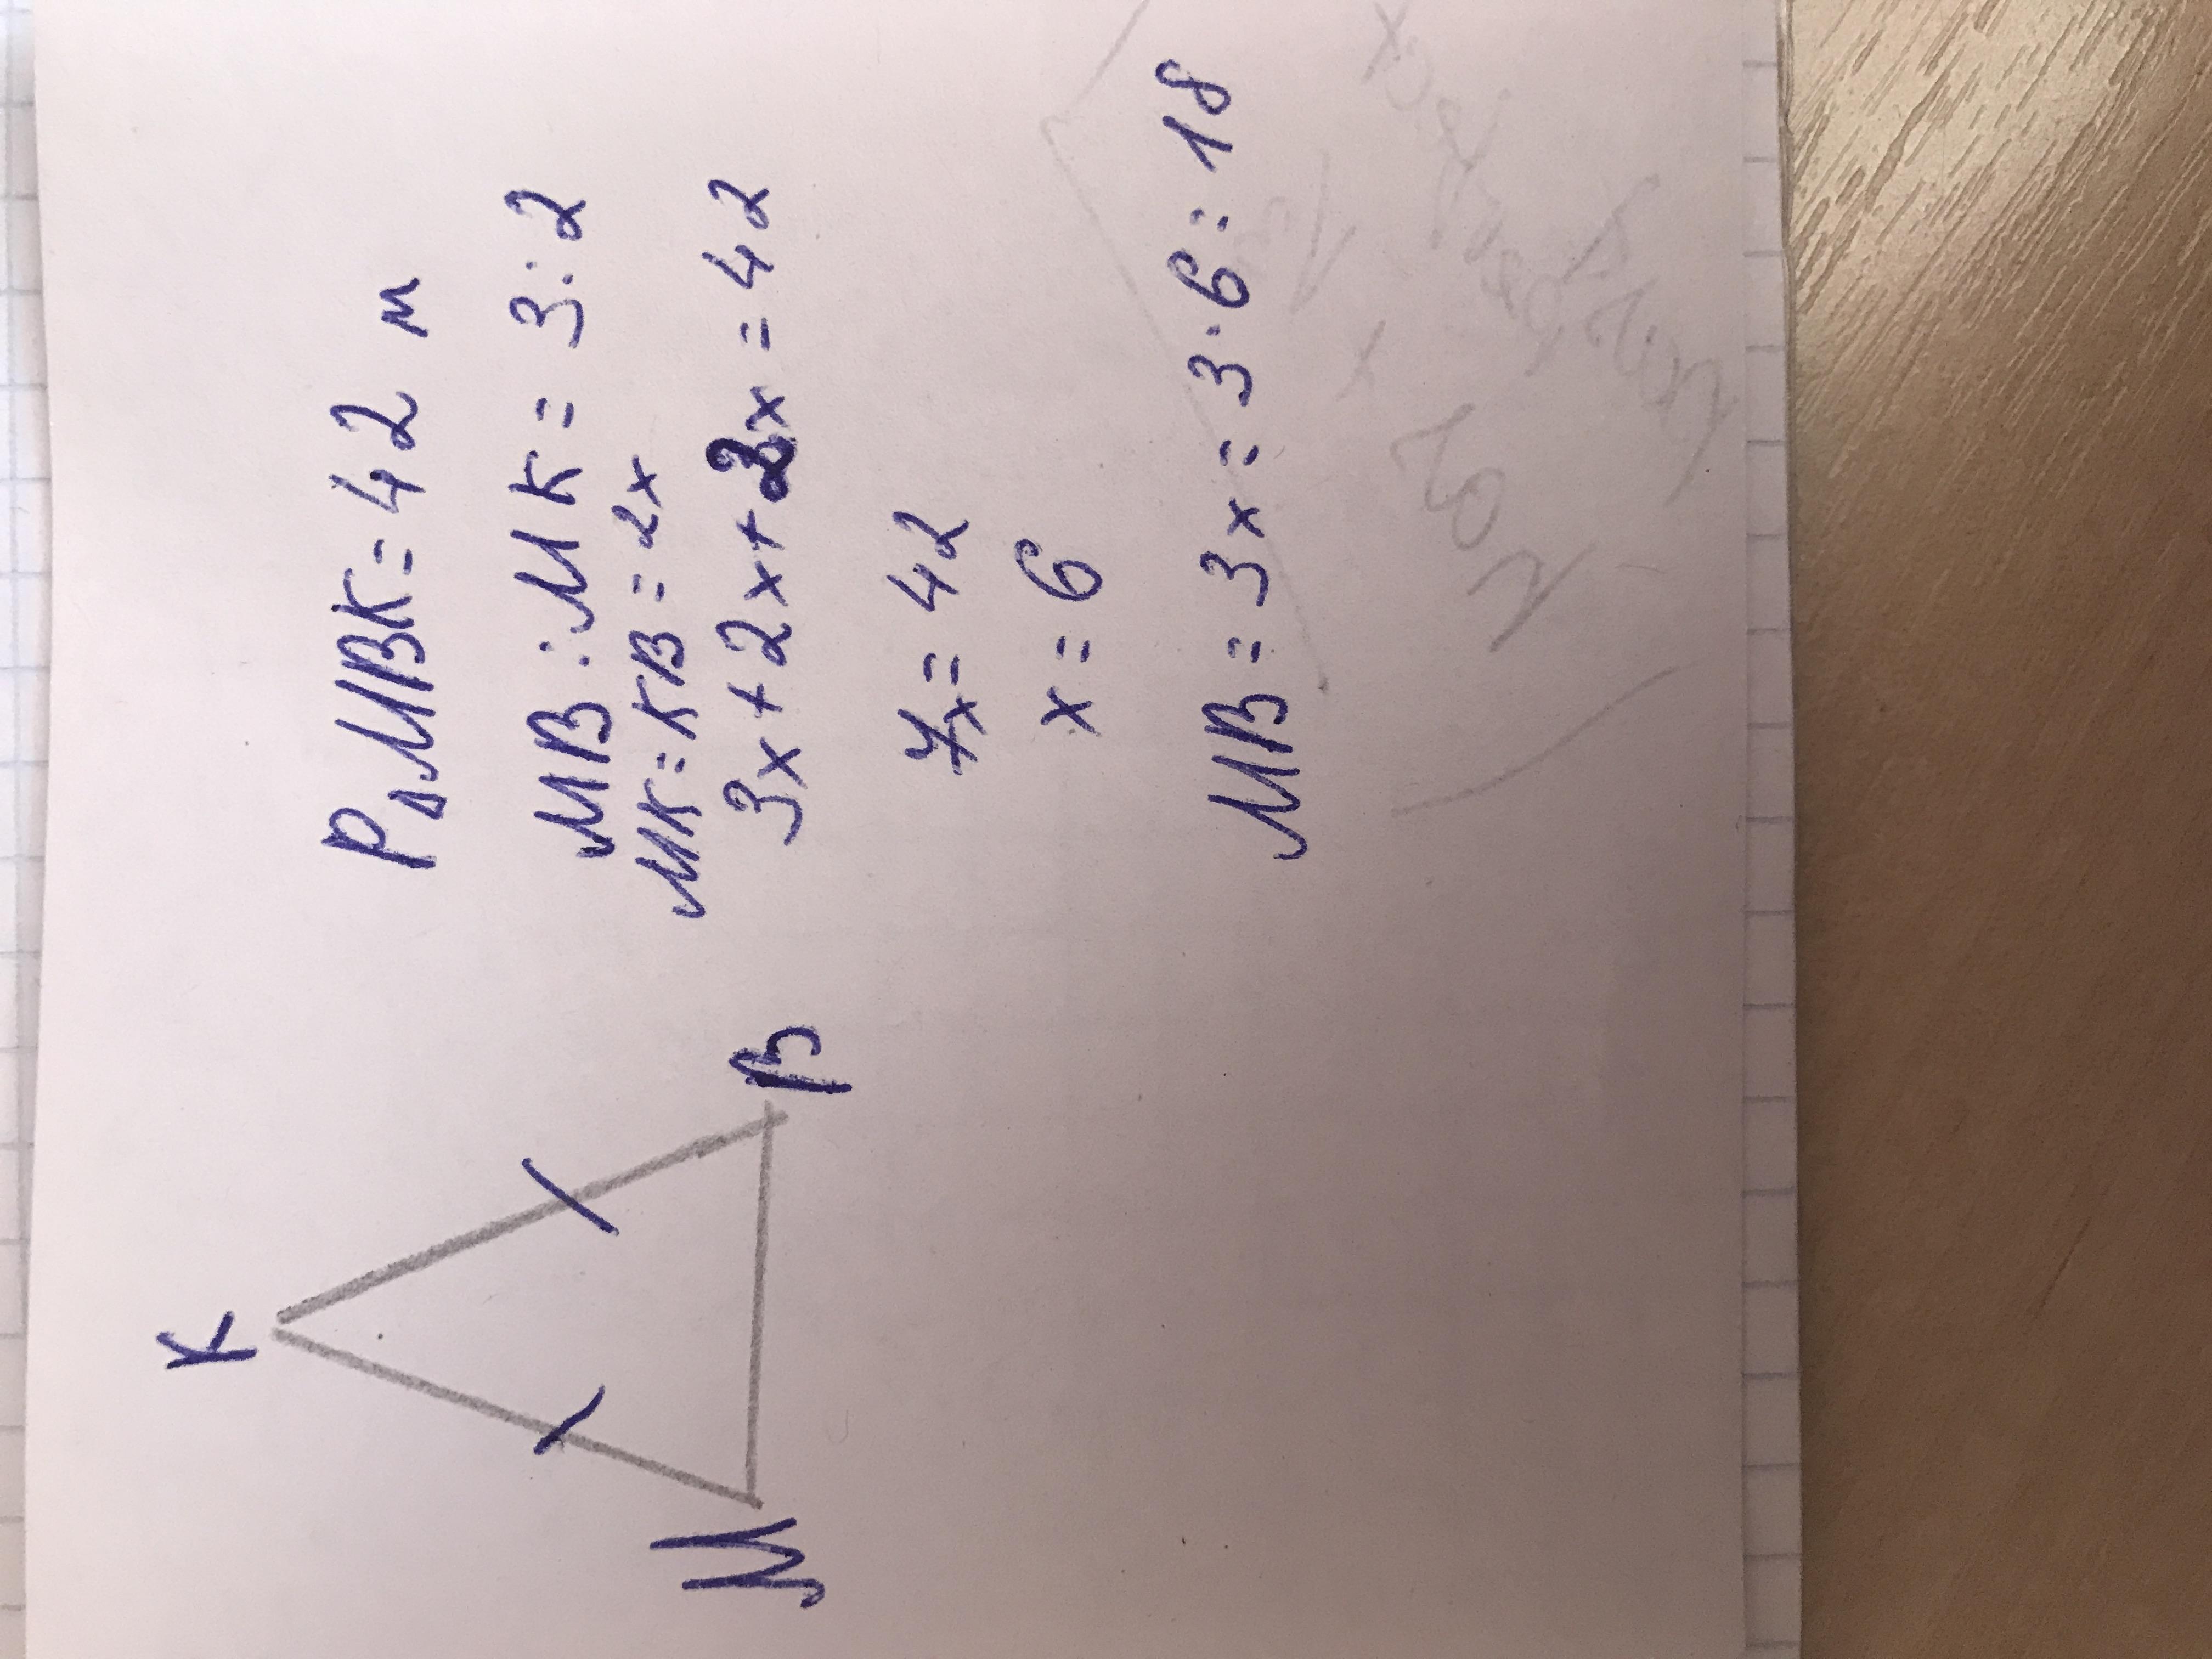 K
M
B
P△MBK = 42 м
MB : MK = 3 : 2
MK = KB = 2x
3x + 2x + 2x = 42
7x = 42
x = 6
MB = 3x = 3 · 6 = 18